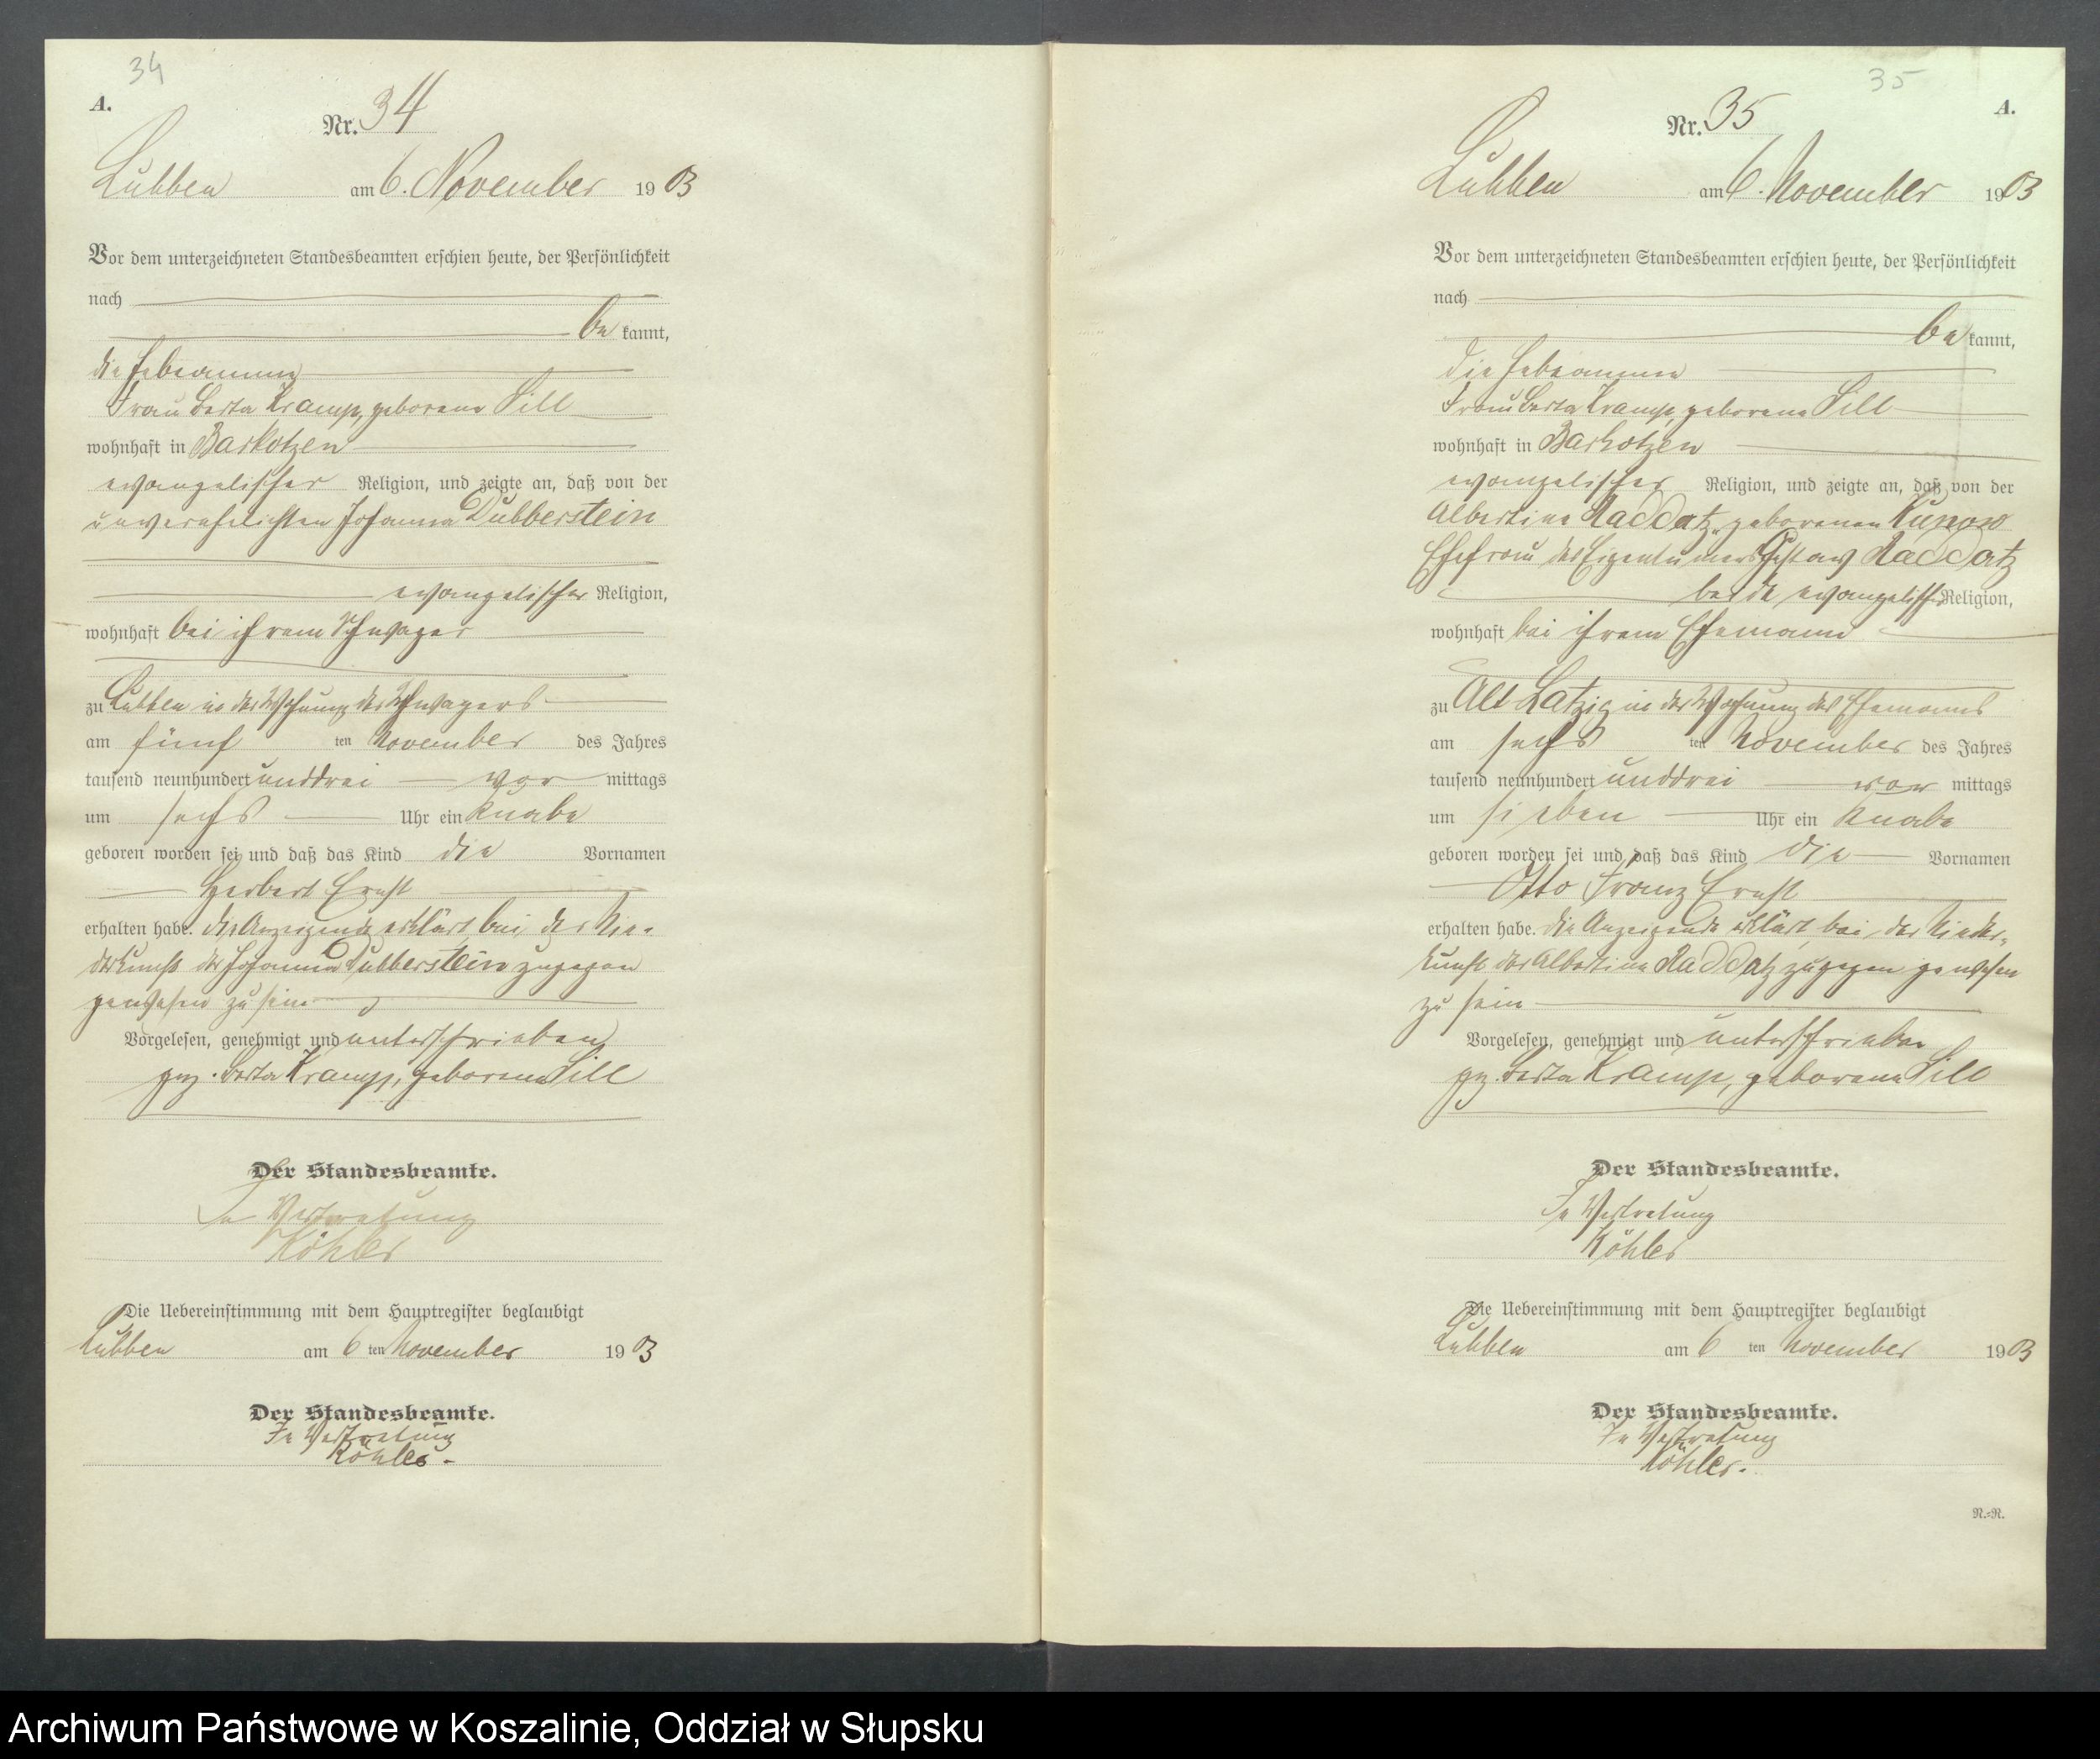 34
A.
Nr. 34
Lubben am 6. November 1903
Vor dem unterzeichneten Standesbeamten erschien heute, der Persönlichkeit
nach
be kannt,
die Hebeamme
Frau Berta Kramp, geborene Sill
wohnhaft in Barkotzen
evangelischer Religion, und zeigte an, daß von der
unverehelichten Johanna Dubberstein
evangelischer Religion,
wohnhaft bei ihrem Schwager
zu Lubben in der Wohnung des Schwagers
am fünf ten November des Jahres
tausend neunhundert unddrei vor mittags
um sechs Uhr ein Knabe
geboren worden sei und daß das Kind die Vornamen
Herbert Ernst
erhalten habe. Die Anzeigende erklärt, bei der Nie-
derkunft der Johanna Dubberstein zugegen
gewesen zu sein
Vorgelesen, genehmigt und unterschrieben
gez. Berta Kramp, geborene Sill
Der Standesbeamte.
In Vertretung
Köhler
Die Uebereinstimmung mit dem Hauptregister beglaubigt
Lubben am 6 ten November 1903
Der Standesbeamte.
In Vertretung
Köhler.
35
A.
Nr. 35
Lubben am 6. November 1903
Vor dem unterzeichneten Standesbeamten erschien heute, der Persönlichkeit
nach
be kannt,
die Hebeamme
Frau Berta Kramp, geborene Sill
wohnhaft in Barkotzen
evangelischer Religion, und zeigte an, daß von der
Albertine Raddatz, geborenen
Ehefrau des Eigentümers Gustav Raddatz
beide evangelischer Religion,
wohnhaft bei ihrem Ehemann
zu Alt Latzig in der Wohnung des Ehemanns
am sechs ten November des Jahres
tausend neunhundert unddrei vor mittags
um sieben Uhr ein Knabe
geboren worden sei und daß das Kind die Vornamen
Otto Franz Ernst
erhalten habe. Die Anzeigende erklärt, bei der Nieder-
kunft der Albertine Raddatz zugegen gewesen
zu sein
Vorgelesen, genehmigt und unterschrieben
gez. Berta Kramp, geborene Sill
Der Standesbeamte.
In Vertretung
Köhler
Die Uebereinstimmung mit dem Hauptregister beglaubigt
Lubben am 6 ten November 1903
Der Standesbeamte.
In Vertretung
Köhler.
R.-R.
Archiwum Państwowe w Koszalinie, Oddział w Słupsku